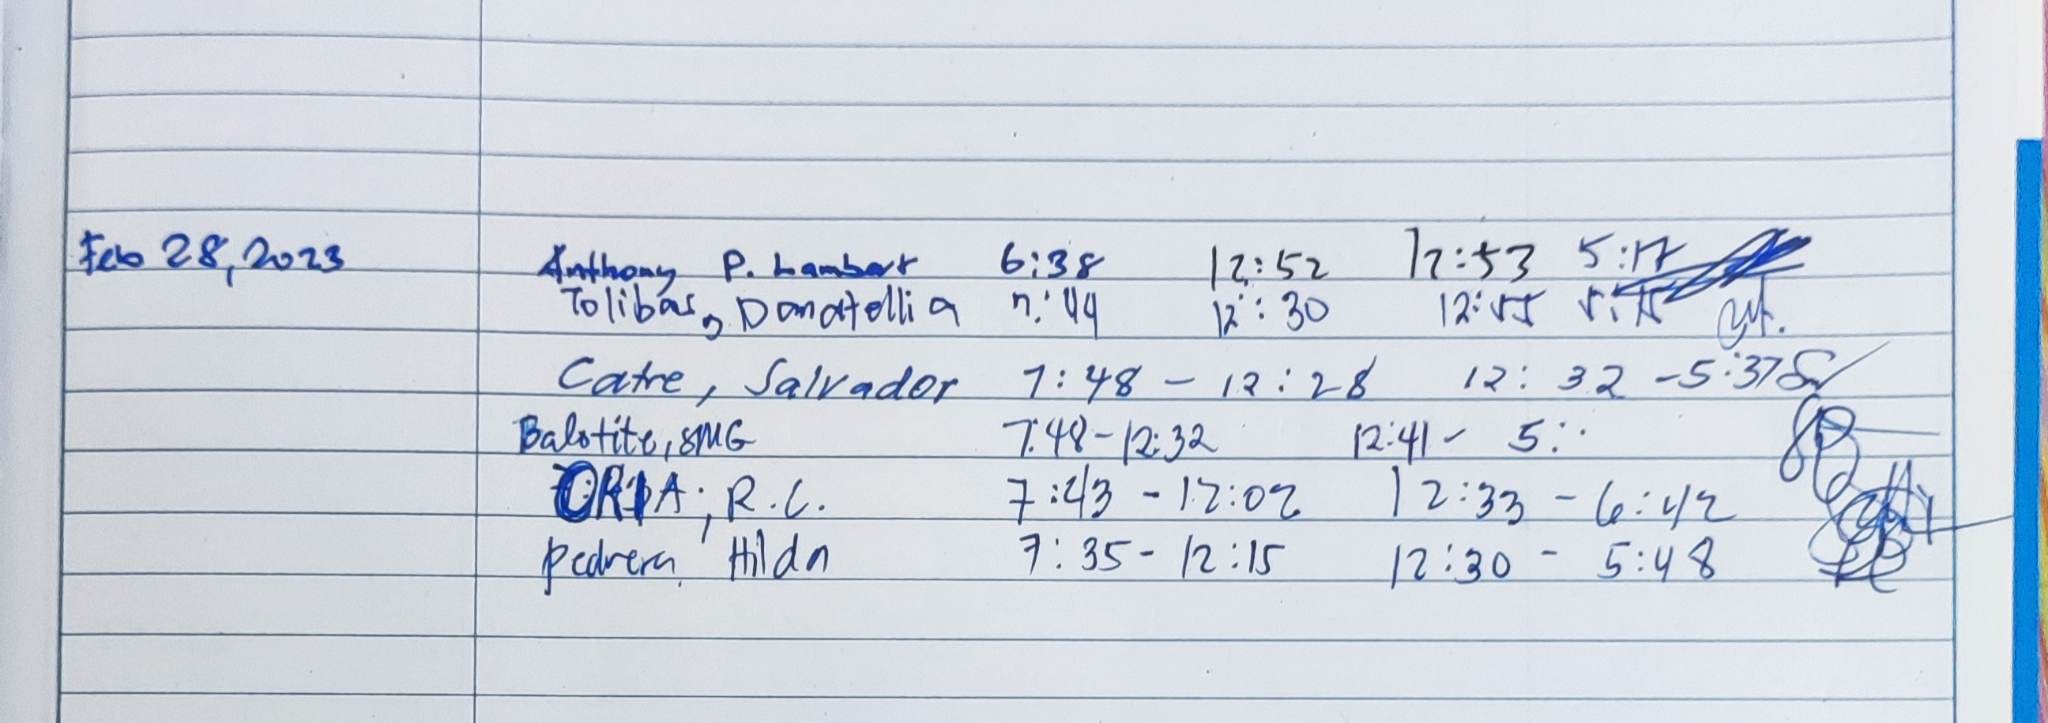 Feb 28, 2023 Anthony P. Lambert 6:38 12:52 12:53 5:17
Tolibas, Donatellia 7:44 12:30 12:55 5:15
Catre, Salvador 7:48 - 12:28 12:32 - 5:37
Balotite, SMG 7:48 - 12:32 12:41 - 5:
ORIA, R.C. 7:43 - 12:02 12:33 - 6:42
Pedrera, Hilda 7:35 - 12:15 12:30 - 5:48